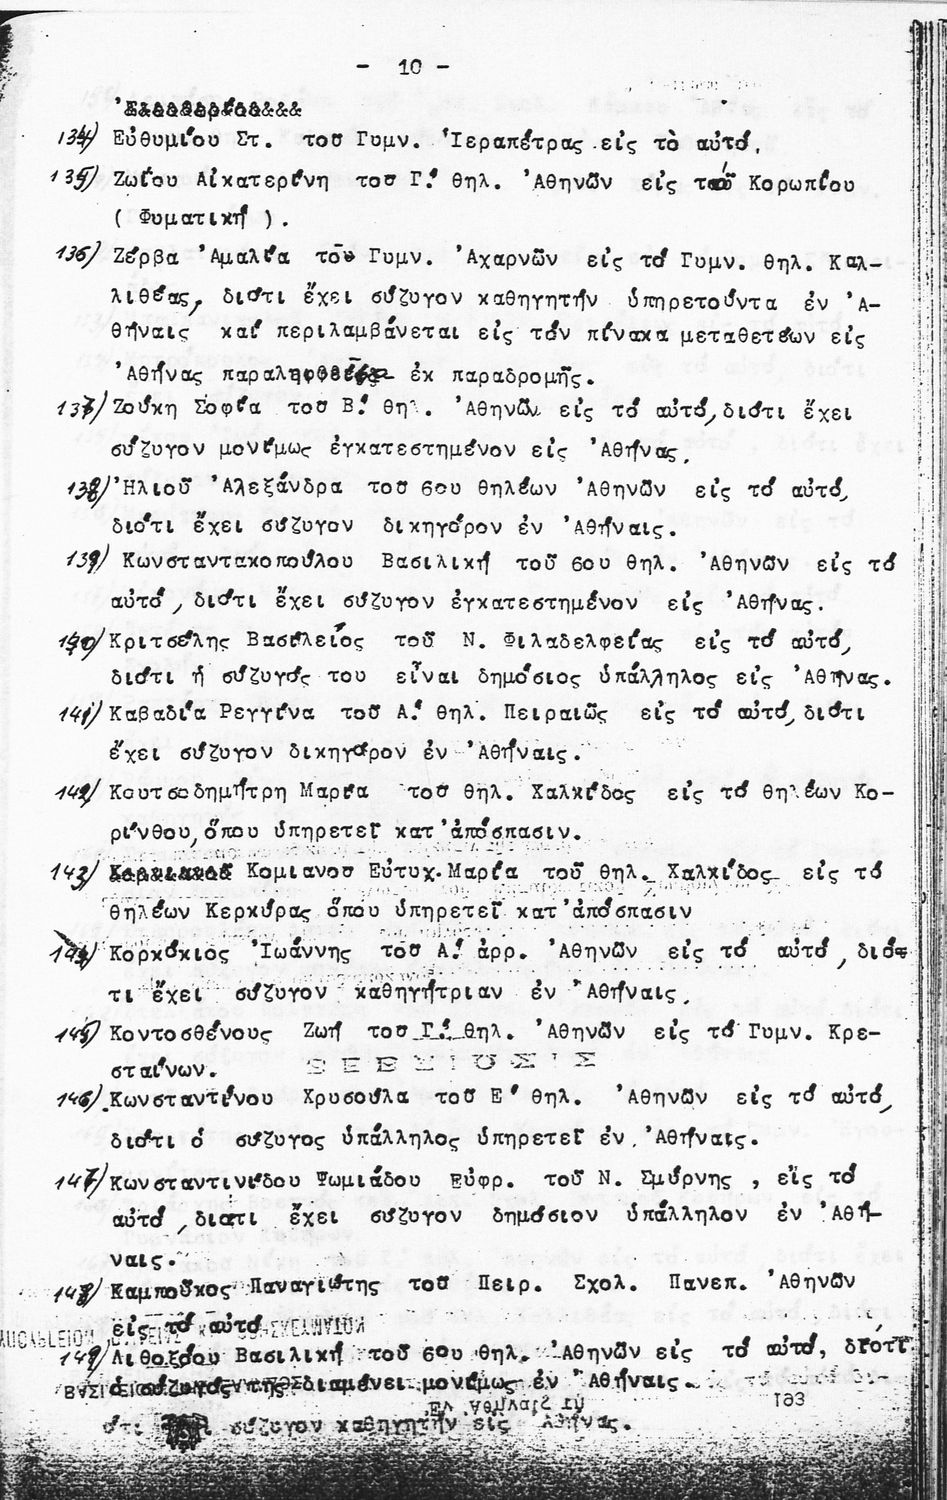 - 10 -
134) Εὐθυμίου Στ. τοῦ Γυμν. Ἱεραπέτρας εἰς τὸ αὐτό.
135) Ζωΐου Αἰκατερίνη τοῦ Γ! θηλ. Ἀθηνῶν εἰς τοῦ Κορωπίου
( Φυματική ).
136) Ζέρβα Ἀμαλία τοῦ Γυμν. Ἀχαρνῶν εἰς τό Γυμν. θηλ. Καλ-
λιθέας, διότι ἔχει σύζυγον καθηγητήν ὑπηρετοῦντα ἐν Ἀ-
θήναις καί περιλαμβάνεται εἰς τόν πίνακα μεταθετέων εἰς
Ἀθήνας παραληφθεῖσα ἐκ παραδρομῆς.
137) Ζούκη Σοφία τοῦ Β! θηλ. Ἀθηνῶν εἰς τό αὐτό, διότι ἔχει
σύζυγον μονίμως ἐγκατεστημένον εἰς Ἀθήνας.
138) Ἡλιοῦ Ἀλεξάνδρα τοῦ 6ου θηλέων Ἀθηνῶν εἰς τό αὐτό,
διότι ἔχει σύζυγον δικηγόρον ἐν Ἀθήναις.
139) Κωνσταντακοπούλου Βασιλική τοῦ 6ου θηλ. Ἀθηνῶν εἰς τό
αὐτό, διότι ἔχει σύζυγον ἐγκατεστημένον εἰς Ἀθήνας.
140) Κριτσέλης Βασίλειος τοῦ Ν. Φιλαδελφείας εἰς τό αὐτό,
διότι ἡ σύζυγός του εἶναι δημόσιος ὑπάλληλος εἰς Ἀθήνας.
141) Καβαδία Ρεγγίνα τοῦ Α! θηλ. Πειραιῶς εἰς τό αὐτό, διότι
ἔχει σύζυγον δικηγόρον ἐν Ἀθήναις.
142) Κουτσοδημήτρη Μαρία τοῦ θηλ. Χαλκίδος εἰς τό θηλέων Κο-
ρίνθου, ὅπου ὑπηρετεῖ κατ' ἀπόσπασιν.
143) Κομιανοῦ Εὐτυχ. Μαρία τοῦ θηλ. Χαλκίδος εἰς τό
θηλέων Κερκύρας ὅπου ὑπηρετεῖ κατ' ἀπόσπασιν
144) Κορκόκιος Ἰωάννης τοῦ Α! ἀρρ. Ἀθηνῶν εἰς τό αὐτό, διό-
τι ἔχει σύζυγον καθηγήτριαν ἐν Ἀθήναις.
145) Κοντοσθένους Ζωή τοῦ Γ! θηλ. Ἀθηνῶν εἰς τό Γυμν. Κρε-
σταίνων.
146) Κωνσταντίνου Χρυσούλα τοῦ Ε! θηλ. Ἀθηνῶν εἰς τό αὐτό,
διότι ὁ σύζυγος ὑπάλληλος ὑπηρετεῖ ἐν Ἀθήναις.
147) Κωνσταντινίδου Ψωμιάδου Εὐφρ. τοῦ Ν. Σμύρνης, εἰς τό
αὐτό, διότι ἔχει σύζυγον δημόσιον ὑπάλληλον ἐν Ἀθή-
ναις.
148) Καμποῦκος Παναγιώτης τοῦ Πειρ. Σχολ. Πανεπ. Ἀθηνῶν
εἰς τό αὐτό
149) Λιθοξόου Βασιλική τοῦ 6ου θηλ. Ἀθηνῶν εἰς τό αὐτό, διότι
ὁ σύζυγός της διαμένει μονίμως ἐν Ἀθήναις.
σύζυγον καθηγητήν εἰς Ἀθήνας.